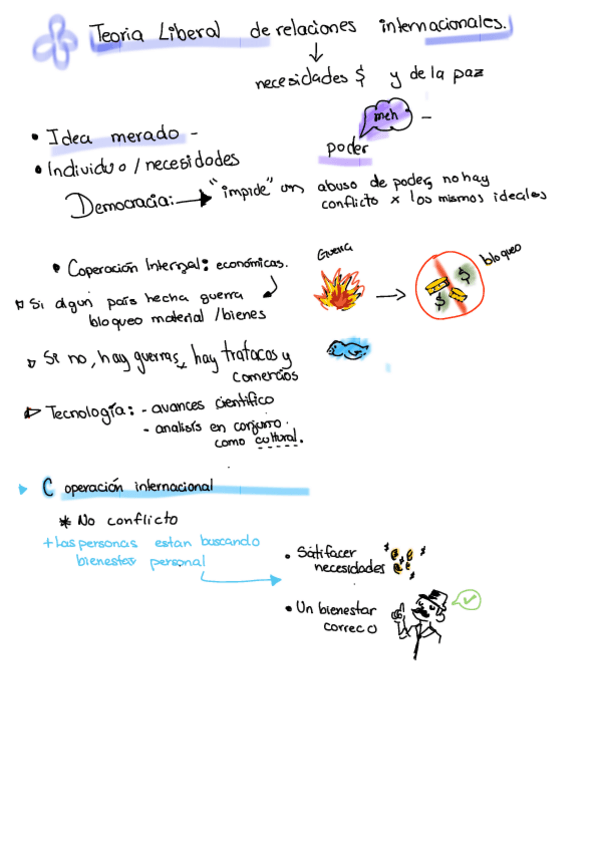 Teoria Liberal de relaciones internacionales.
necesidades $ y de la paz
meh
• Idea merado -
poder -
• Individuo / necesidades
Democracia: "impide" un abuso de poder, no hay
conflicto x los mismos ideales
• Coperación Internal: económicas.
Guerra
bloqueo
$
$
Si algun país hecha guerra
bloqueo material / bienes
Si no, hay guerras, hay tratacos y
comercios
Tecnología: - avances científico
- analisis en conjunto.
como cultural.
Coperación internacional
* No conflicto
+ Las personas estan buscando
bienestar personal
• Satifacer
necesidades
$ $ $ $
• Un bienestar
correco